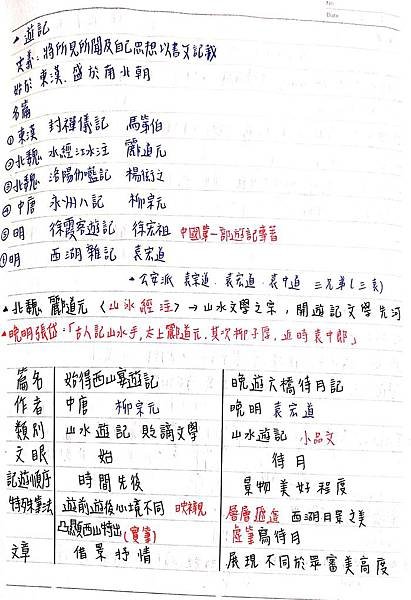 No
Date
▲遊記
定義：將所見所聞及自己思想以書文記載
始於東漢，盛於南北朝
名篇
①東漢 封禪儀記 馬第伯
②北魏 水經江水注 酈道元
③北魏 洛陽伽藍記 楊衒之
④中唐 永州八記 柳宗元
⑤明 徐霞客遊記 徐宏祖 中國第一部遊記專著
明 西湖雜記 袁宏道
▲公安派 袁宗道、袁宏道、袁中道 三兄弟(三袁)
▲北魏 酈道元 〈山水經注〉→山水文學之宗，開遊記文學先河
▲晚明張岱：「古人記山水手，太上酈道元，其次柳子厚，近時袁中郎」
篇名 始得西山宴遊記 晚遊六橋待月記
作者 中唐 柳宗元 晚明 袁宏道
類別 山水遊記 貶謫文學 山水遊記 小品文
文眼 始 待月
記遊順序 時間先後 景物美好程度
特殊筆法 遊前遊後心境不同 映襯 層層遞進 西湖月景之美
凸顯西山特出(實筆) 虛筆寫待月
文章 借景抒情 展現不同於眾審美高度